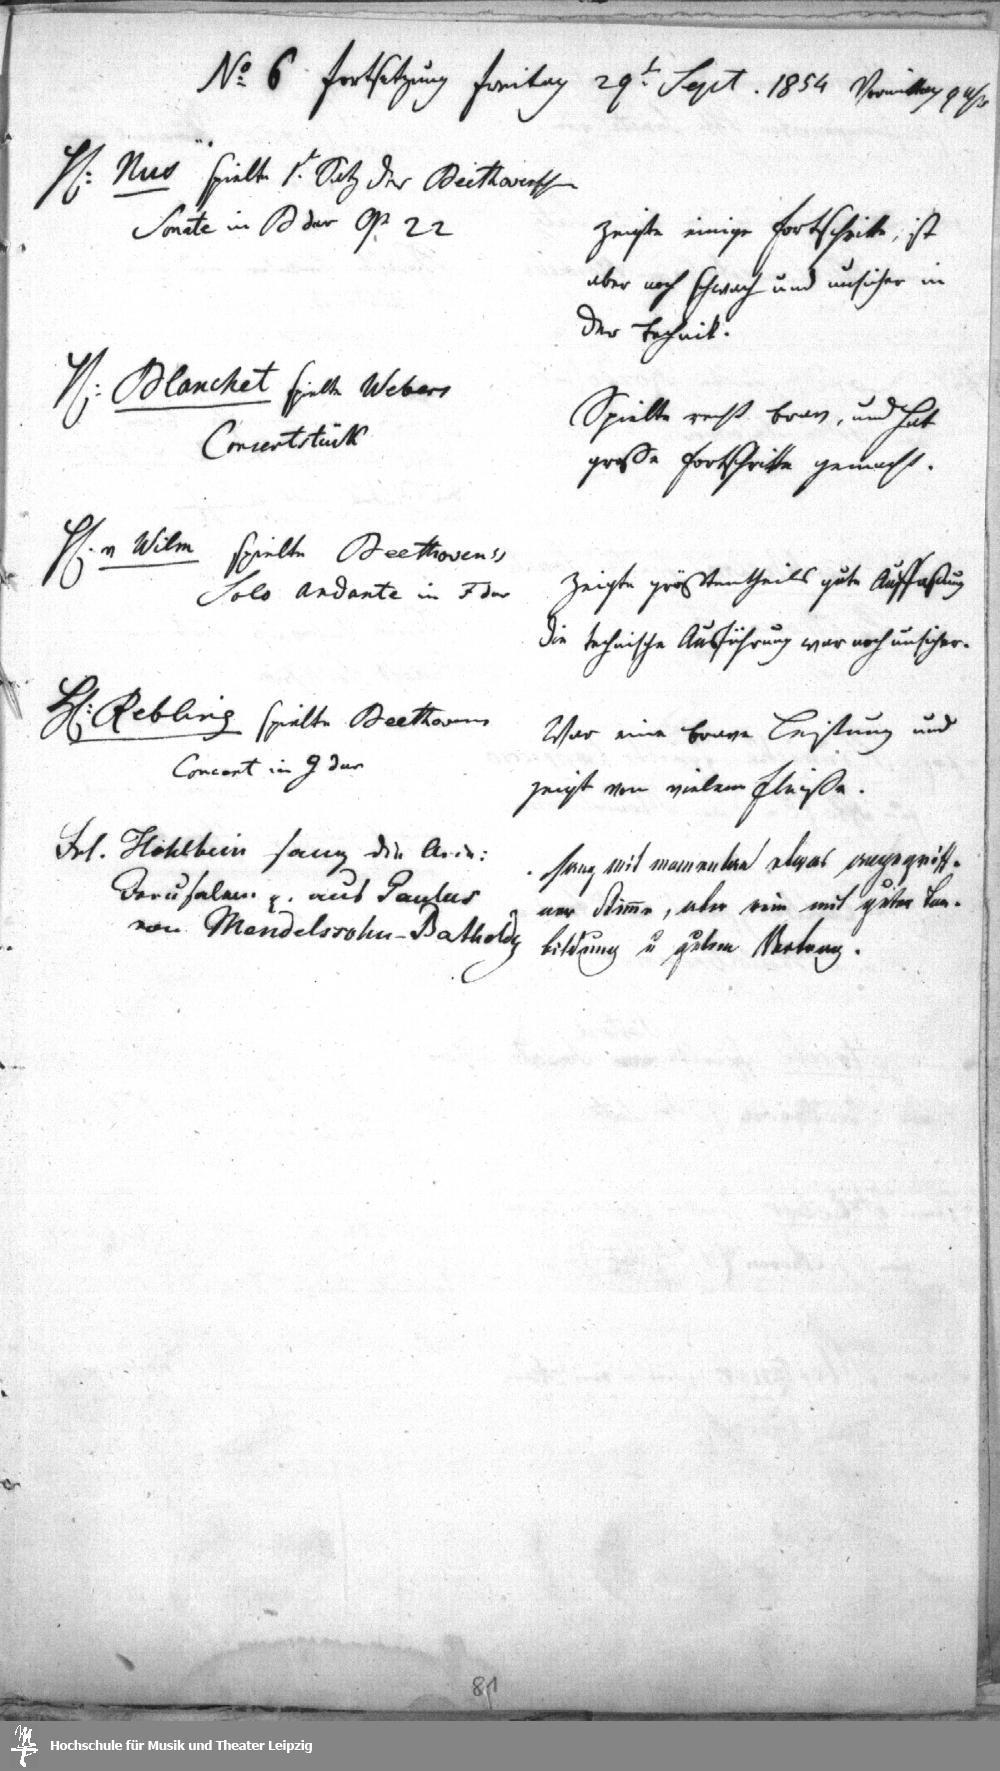 No 6 Fortsetzung Freitag 29t Sept. 1854 Vormittag 9 Uhr
H: Nus spielte 1r Satz der Beethovenschen
Sonate in B dur Op 22
zeigte einige Fortschritte, ist
aber noch schwach und unsicher in
der Technik.
H: Blanchet spielte Webers
Concertstück
Spielte recht brav, und hat
große Fortschritte gemacht.
H. v Wilm spielte Beethovens
Solo Andante in F dur
zeigte größtentheils gute Auffaßung
die technische Ausführung war noch unsicher.
H: Rebling spielte Beethovens
Concert in G dur
War eine brave Leistung und
zeigt von vielem Fleiße.
Frl. Höhlbein sang die Arie:
Jerusalem p. aus Paulus
von Mendelssohn-Batholdy
sang mit momentan etwas angegriff-
ner Stimme, aber rein mit guter Ton-
bildung u gutem Vortrag.
81
Hochschule für Musik und Theater Leipzig